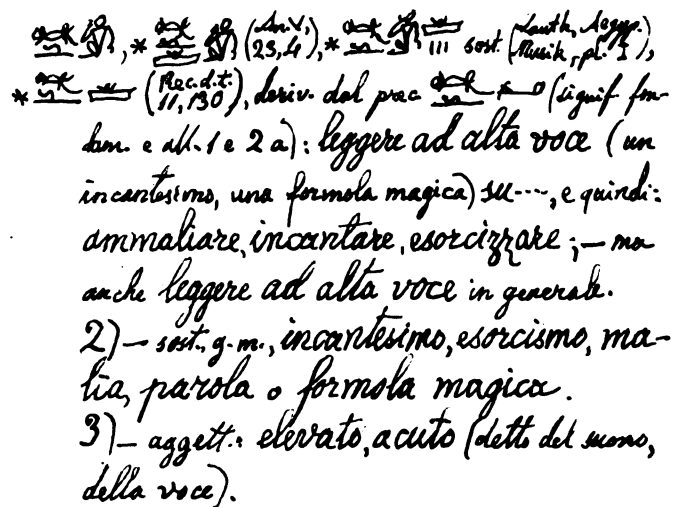 , * (An. V, 23,4), * III sost. (Lauth, Aegyp. Musik, pl. I),
* (Rec. d. t. 11, 130), deriv. dal prec. (signif. fon-
dam. e all. 1 e 2 a): leggere ad alta voce (un
incantesimo, una formola magica) su...., e quindi:
ammaliare, incantare, esorcizzare; – ma
anche leggere ad alta voce in generale.
2) – sost. g. m., incantesimo, esorcismo, ma-
lia, parola o formola magica.
3) – aggett.: elevato, acuto (detto del suono,
della voce).